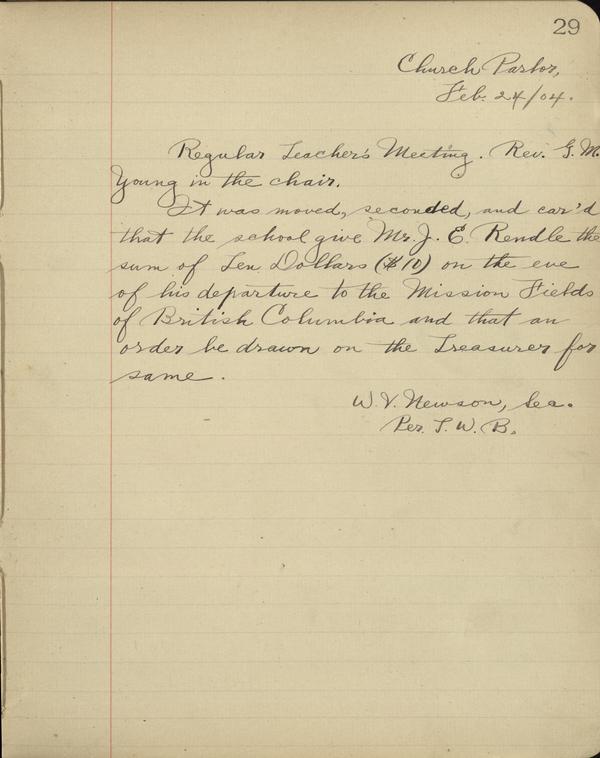 29
Church Parlor,
Feb. 24/04.
Regular Teacher's Meeting. Rev. G. M.
Young in the chair.
It was moved, seconded, and car'd
that the school give Mr. J. E. Rendle the
sum of Ten Dollars ($10) on the eve
of his departure to the Mission Fields
of British Columbia and that an
order be drawn on the Treasurer for
same.
W. V. Newson, Sec.
Per. T. W. B.